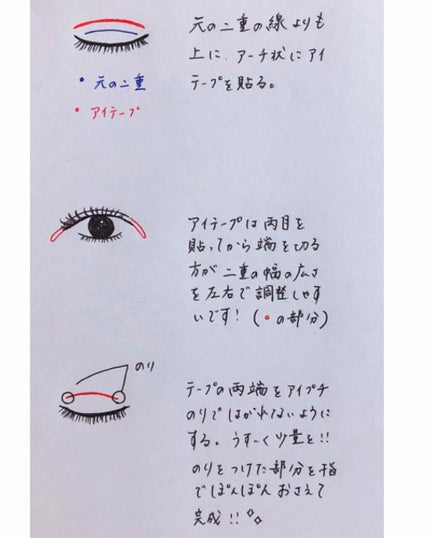 元の二重の線よりも
上に、アーチ状にアイ
テープを貼る。
・元の二重
・アイテープ
アイテープは両目を
貼ってから端を切る
方が二重の幅の広さ
を左右で調整しやす
いです！(・の部分)
のり
テープの両端をアイプチ
のりではがれないように
する。うすーく少量を!!
のりをつけた部分を指
でぽんぽんおさえて
完成!!